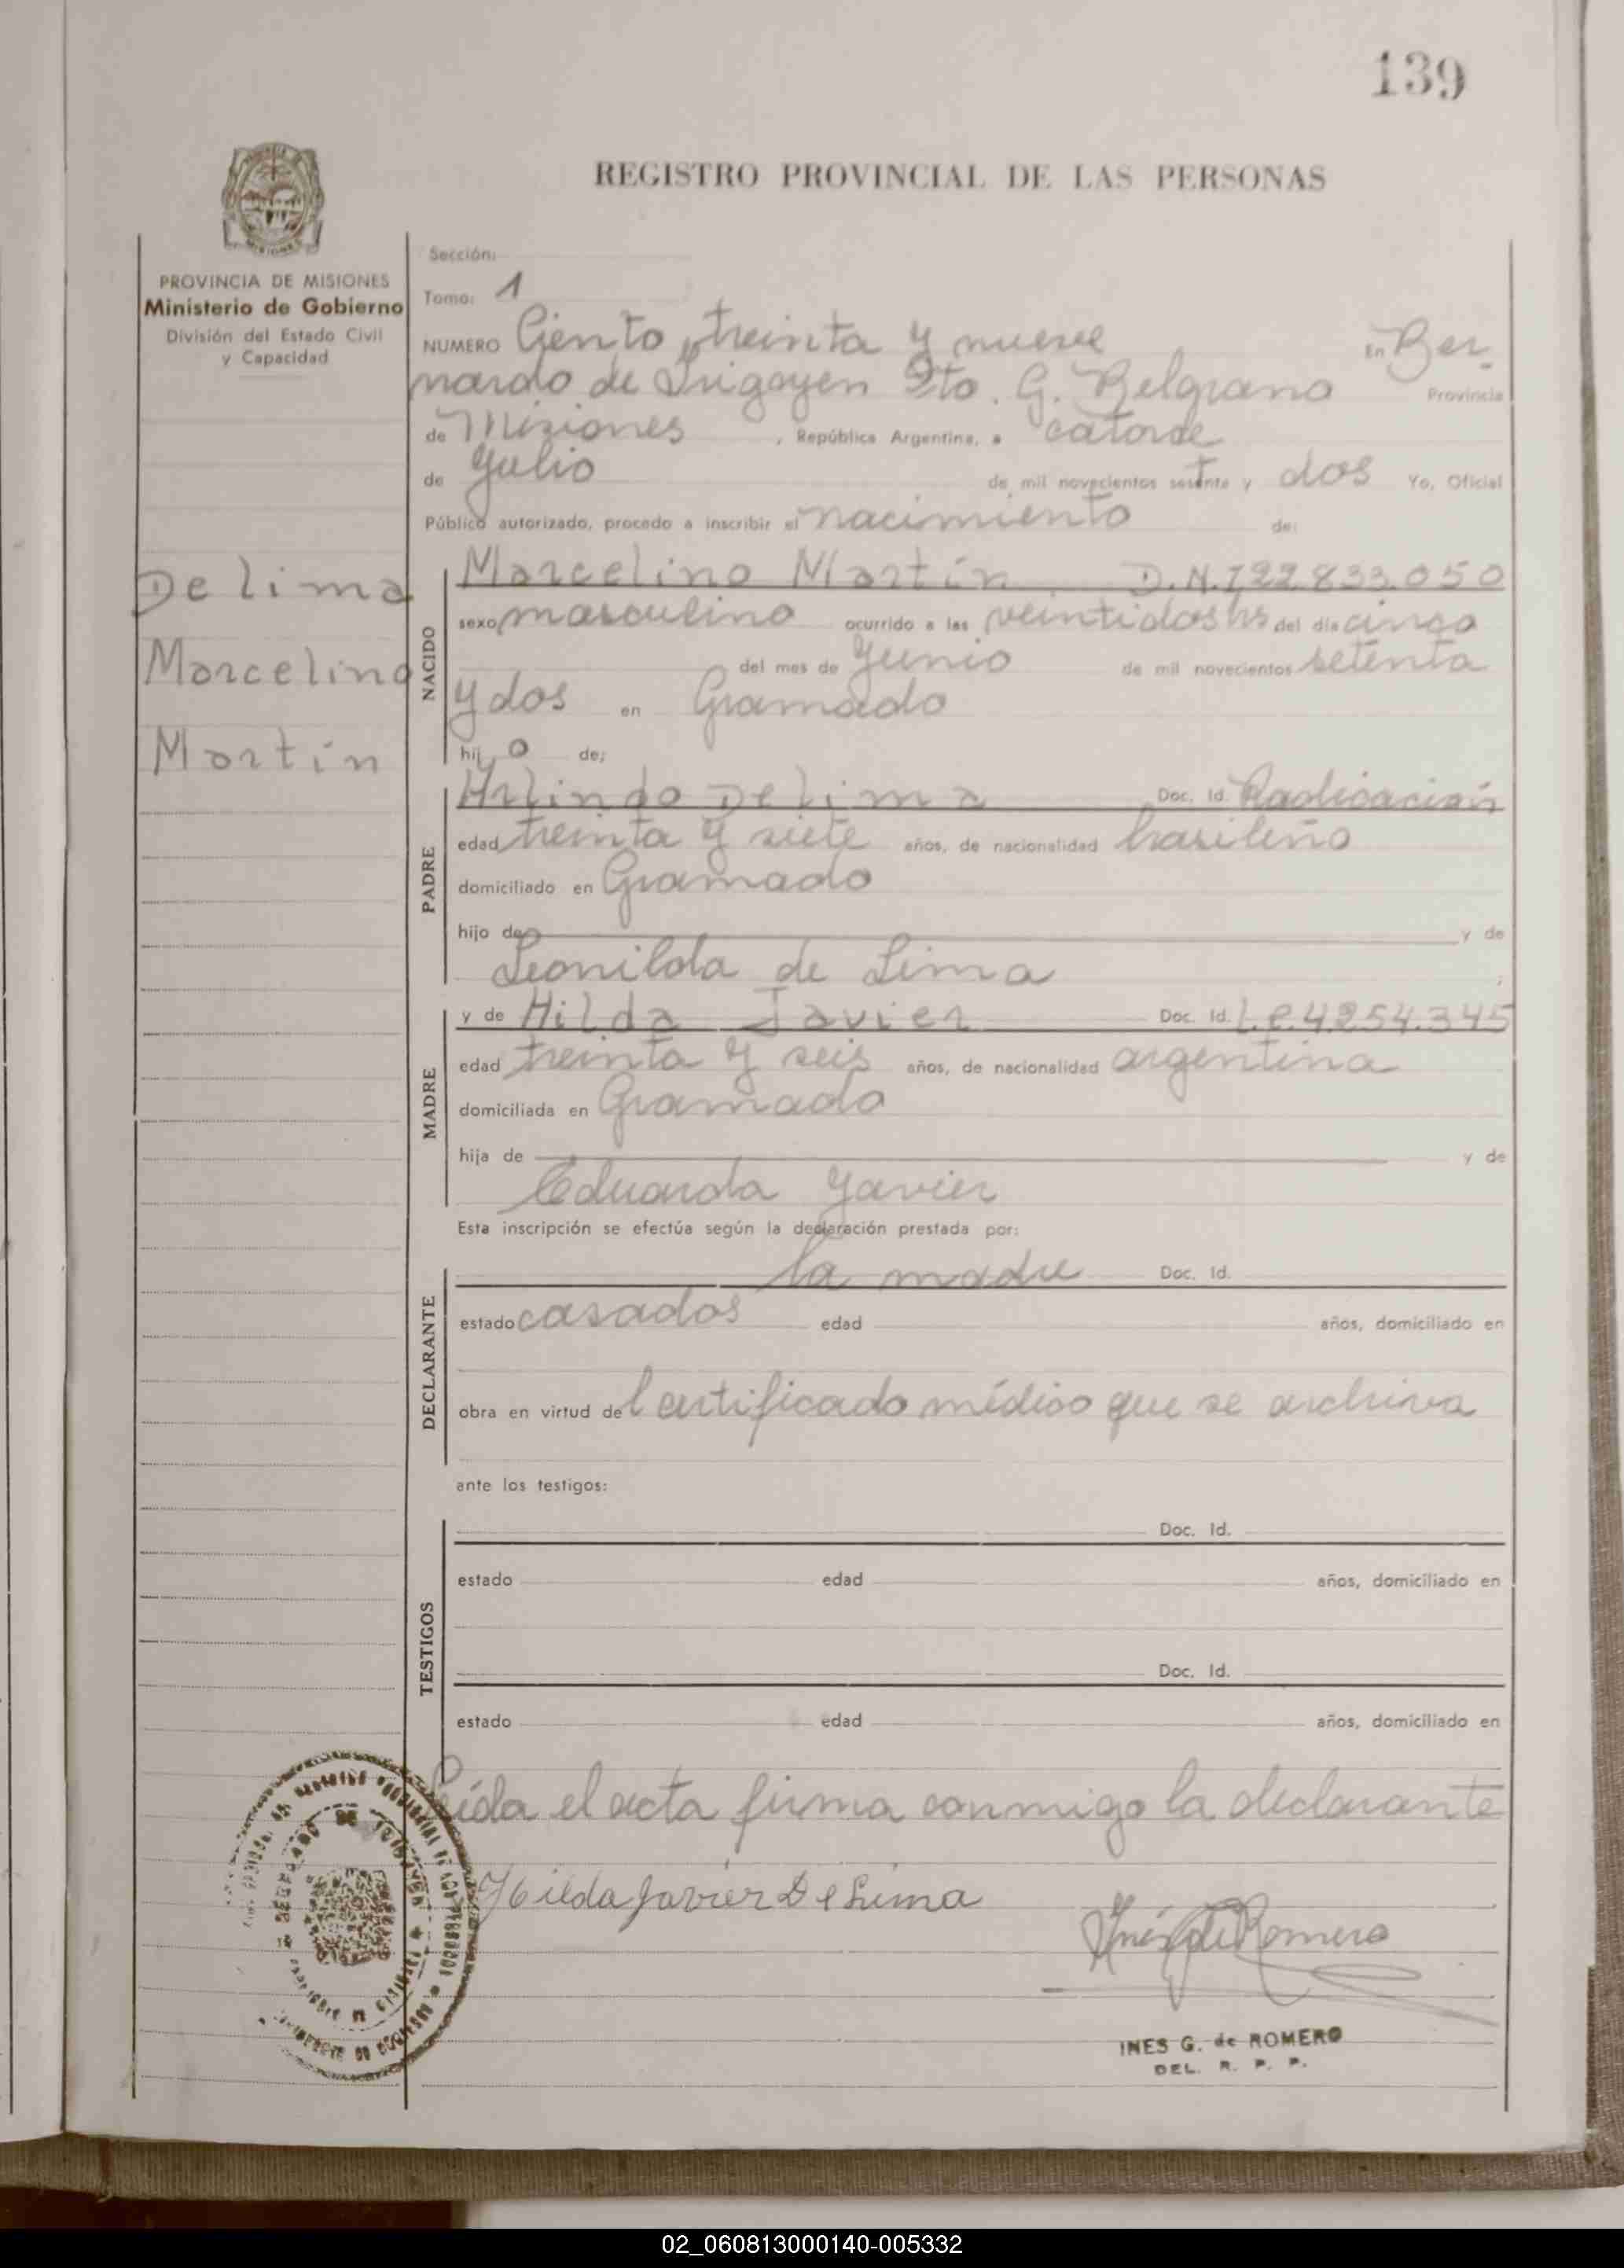 139
REGISTRO PROVINCIAL DE LAS PERSONAS
PROVINCIA DE MISIONES
Ministerio de Gobierno
División del Estado Civil
y Capacidad
Sección:
Tomo: 1
NUMERO Ciento treinta y nueve En Ber
nardo de Irigoyen Dto. G. Belgrano Provincia
de Misiones, República Argentina, a catorce
de Julio de mil novecientos setenta y dos Yo, Oficial
Público autorizado, procedo a inscribir el nacimiento de:
De lima
Marcelino
Martín
NACIDO
Marcelino Martín D.N.I 22.833.050
sexo masculino ocurrido a las veintidos hs del día cinco
del mes de Junio de mil novecientos setenta
y dos en Gramado
hijo de:
PADRE
Arlindo De lima Doc. Id. Radicación
edad treinta y siete años, de nacionalidad brasileño
domiciliado en Gramado
hijo de y de
Leonilda de Lima ;
MADRE
y de Hilda Javier Doc. Id. L.C. 4.254.345
edad treinta y seis años, de nacionalidad argentina
domiciliada en Gramado
hija de y de
Eduarda Javier
Esta inscripción se efectúa según la declaración prestada por:
DECLARANTE
la madre Doc. Id.
estado casados edad años, domiciliado en
obra en virtud de Certificado médico que se archiva
ante los testigos:
TESTIGOS
Doc. Id.
estado edad años, domiciliado en
Doc. Id.
estado edad años, domiciliado en
Leída el acta firma conmigo la declarante
Hilda Javier De Lima
Inés G de Romero
INES G. de ROMERO
DEL. R. P. P.
02_060813000140-005332